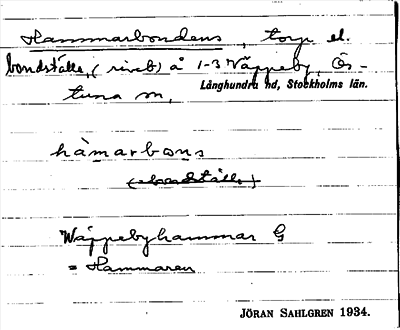 Hammarbondens, torp el.
bondställe, (rivet) å 1-3 Väppeby, Ös-
tuna sn, Långhundra hd, Stockholms län.
hàmarbons
(=bondställe)
Wäppebyhammar G
= Hammaren
JÖRAN SAHLGREN 1934.